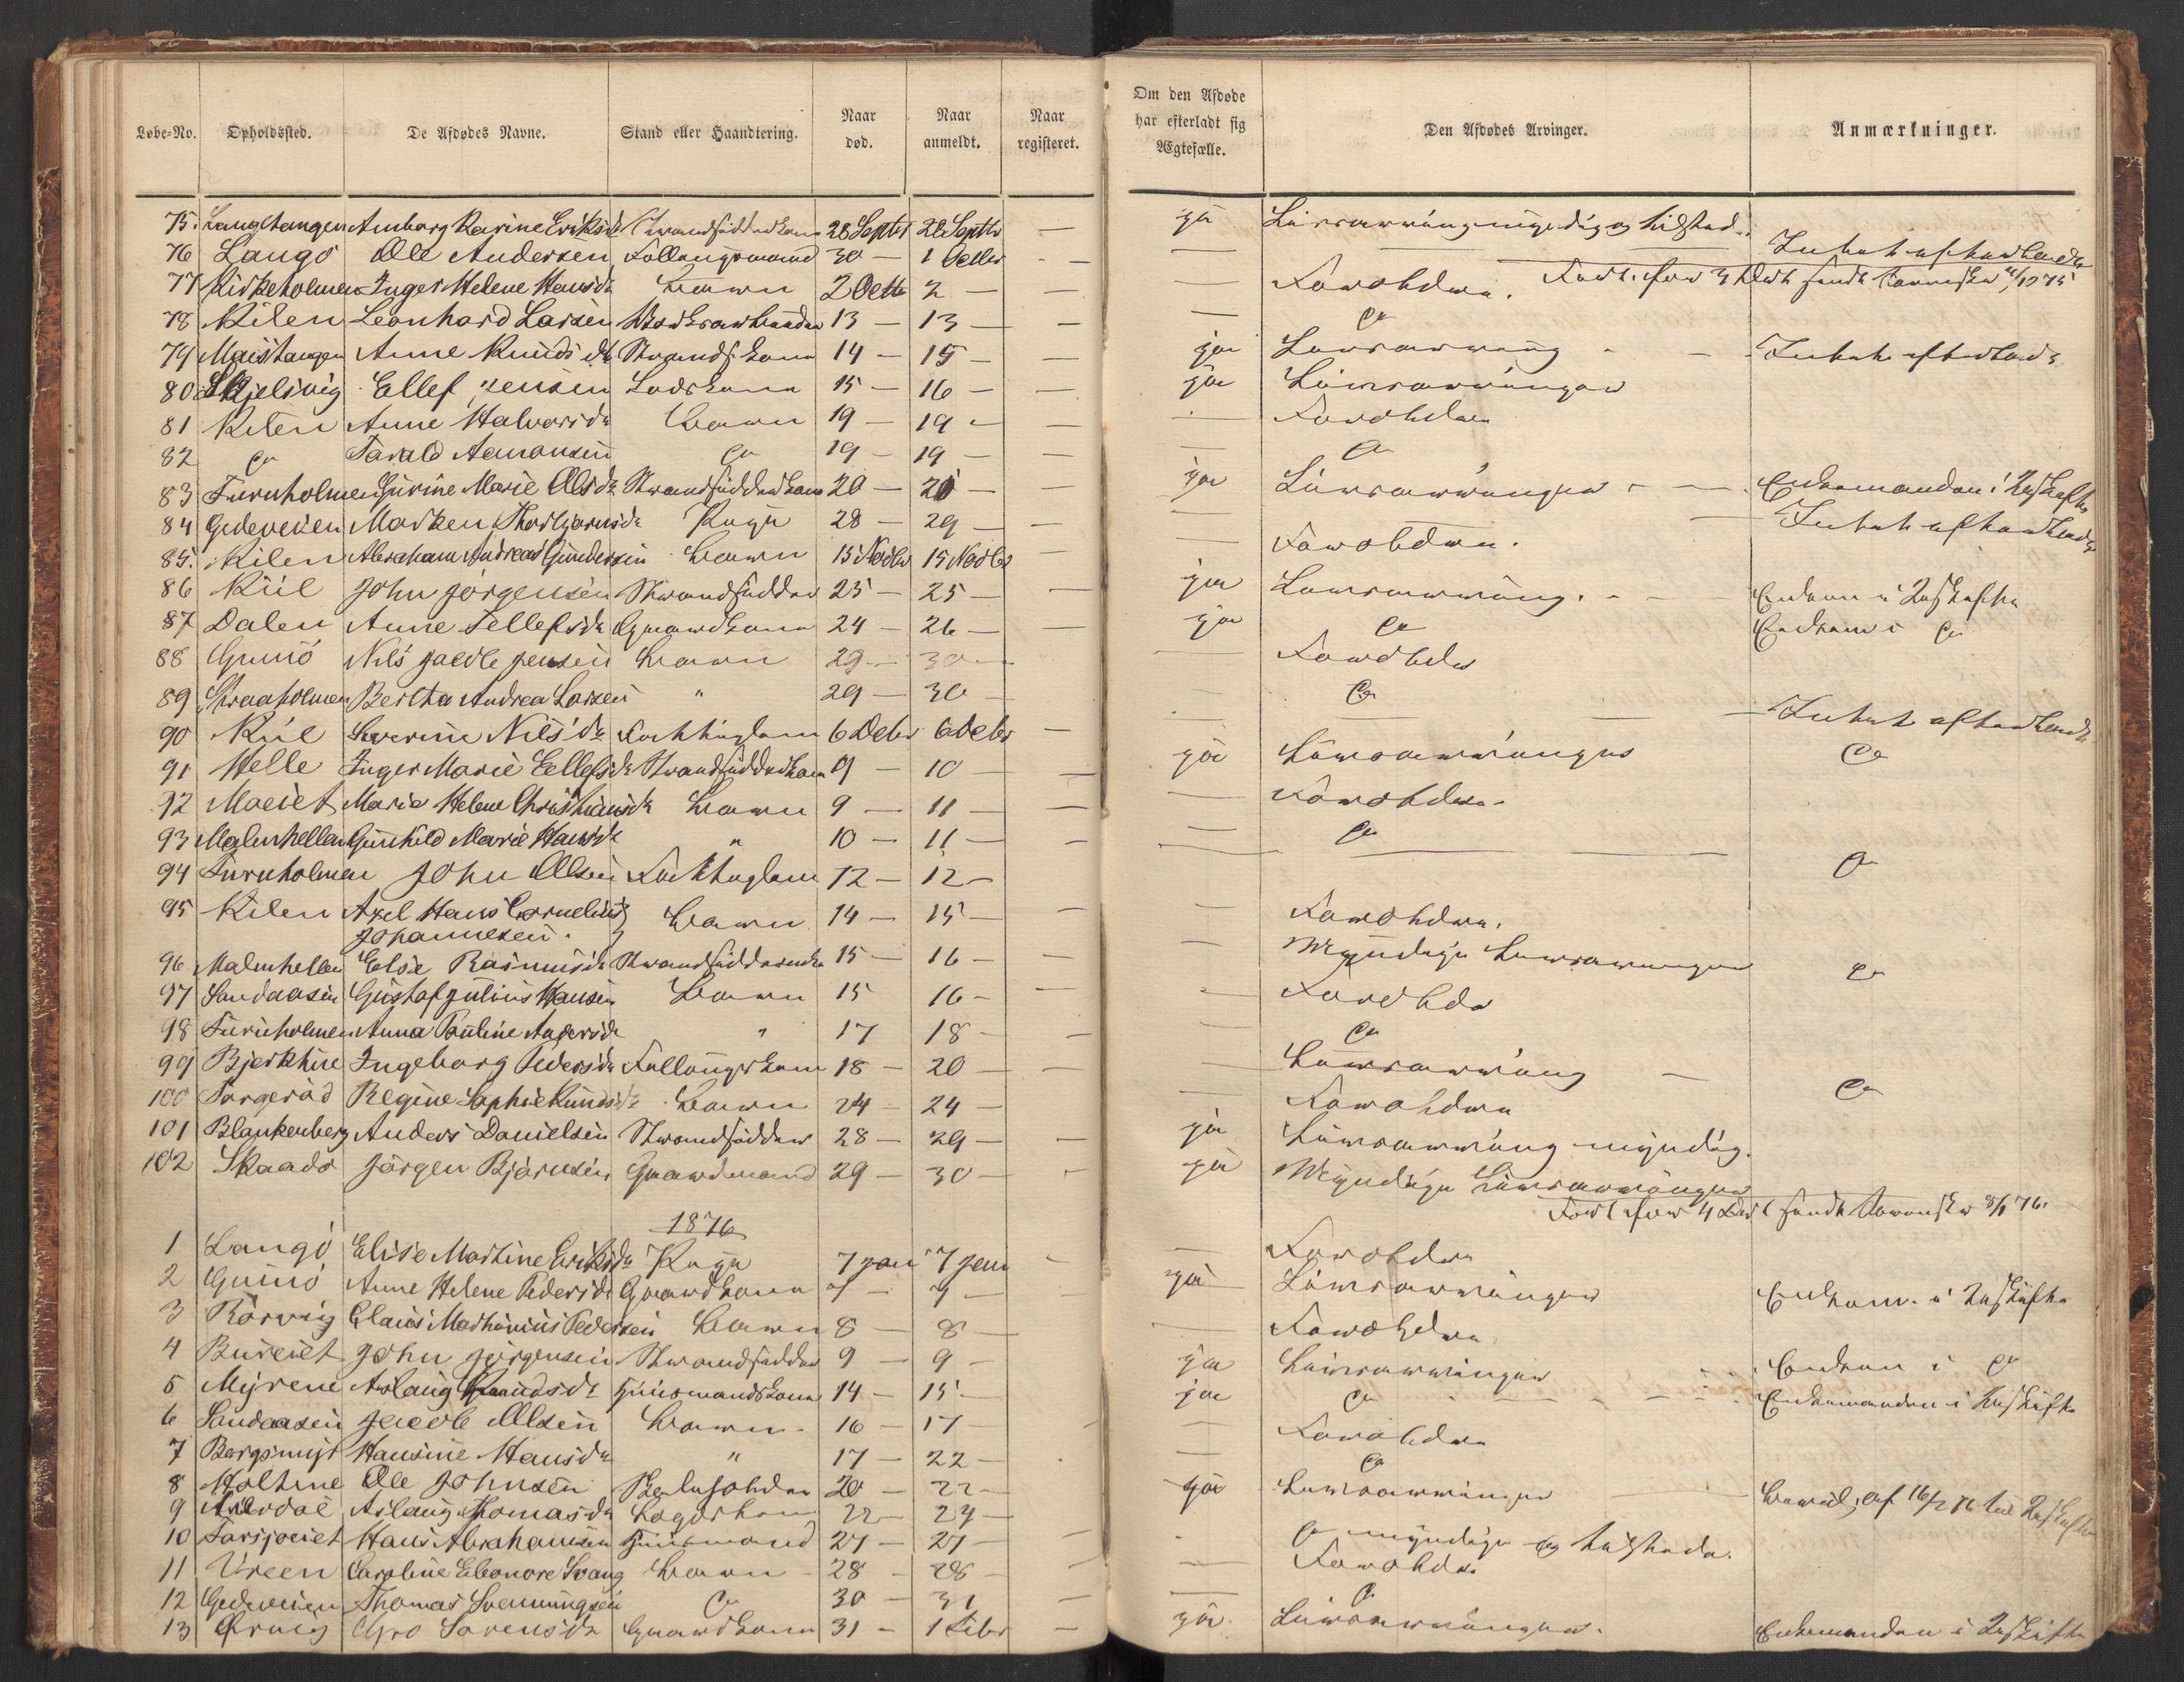 Løbe-No. Opholdssted. De Afdødes Navne. Stand eller Haandtering. Naar død. Naar anmeldt. Naar registeret. Om den Afdøde har efterladt sig Ægtefælle. Den Afdødes Arvinger. Anmærkninger.
75. Langetangen Amborg Karine Eriksd. Strandsidderkone 28 Septbr 28 Septbr — ja Livsarving myndig og tilsted.
76 Langö Ole Andersen Fattigmand 30 — 1 Octbr — — Intet efterladende
77 Kirkeholmen Inger Helene Hansd. Barn 2 Octb 2 — — — Forældre.
78 Kilen Leonhard Larsen 13 — 13 — — — do
79 Maistangen Anne Knudsd. Strands. kone 14 — 15 — — ja Livsarving — Intet efterlad.
80 Skjelsvig Ellef Jensen Lodskone 15 — 16 — — ja Livsarvinger
81 Kilen Anne Halvorsd. Barn 19 — 19 — — — Forældre
82 do Tarald Aamonsen do 19 — 19 — — — do
83 Furuholmen Gurine Marie Olsd. Strandsidderkone 20 — 20 — — ja Livsarvinger — Enkemanden i Uskifte
84 Gjedeveien Marken Thorbjørnsd. Pige 28 — 29 — — — Intet efterladende
85. Kilen Abraham Andreas Gundersen Barn 15 Novbr 15 Novbr — — Forældre.
86 Kiil John Jörgensen Strandsidder 25 — 25 — — ja Livsarving. — Enken i Uskifte
87 Dalen Anne Tellefsd. Gaardkone 24 — 26 — — ja do Enkem i do
88 Gumö Nils Jacob Jensen Barn 29 — 30 — — — Forældre
89 Straaholmen Bertha Andrea Larsen " 29 — 30 — — do
90 Kiil Severine Nilsd. Fattiglem 6 Decbr 6 Decbr — — Intet efterladende
91 Helle Inger Marie Ellefsd. Strandsidderkone 9 — 10 — — ja Livsarvinger do
92 Maeiet Maria Helene Christiansd. Barn 9 — 11 — — — Forældre
93 Malmhellen Gunhild Marie Hansd. " 10 — 11 — — — do
94 Furuholmen John Olsen Fattiglem 12 — 12 — — do
95 Kilen Axel Hans Cornelius Johannesen. Barn 14 — 15 — — — Forældre.
96 Malmhellen Else Rasmusd. Strandsidderenke 15 — 16 — — — Myndige Livsarvinger do
97 Sandaasen Gustaf Julius Hansen Barn 15 16 — — — Forældre
98 Furuholmen Anna Pauline Aagersd. " 17 18 — — — do
99 Bjerkhus Ingeborg Pedersd. Fattigkone 18 — 20 — — — Livsarving — do
100 Torgerød Regine Sophie Knudsd. Barn 24 — 24 — — Forældre
101 Blankenberg Anders Danielsen Strandsidder 28 — 29 — — ja Livsarving myndig.
102 Skaadø Jörgen Bjørnsen Gaardmand 29 — 30 — — ja Myndige Livsarvinger
1876
1 Langö Elise Martine Eriksd. Pige 7 Jan 7 Jan — — Forældre
2 Gumö Anne Helene Pedersd. Gaardkone 7 — 7 — ja Livsarvinger Enkem. i Uskifte
3 Rörvig Claus Mathinius Pedersen Barn 8 — 8 — — Forældre
4 Bureiet John Jörgensen Strandsidder 9 — 9 — ja Livsarvinger Enken i do
5 Myrene Aslaug Knudsd. Huusmandskone 14 — 15 — ja do Enkemanden i Uskifte
6 Sandaasen Jacob Olsen Barn 16 — 17 — — Forældre
7 Bergsmyr Hansine Hansd. " 17 — 22 — — do
8 Holtene Ole Johnsen 20 — 22 — ja Livsarvinger
9 Aslaug Thomasd. 22 — 24 —
10 Hans Abrahamsen Huusmand 27 — 27 — do myndige og tilstede.
11 Ureen Caroline Eleonore Svang Barn 28 — 28 — — Forældre
12 Gjedeveien Thomas Svenningsen do 30 — 31 — do
13 Gro Sörensd. Gaardkone 31 — 1 Febr — ja Livsarvinger. Enkemanden i Uskifte